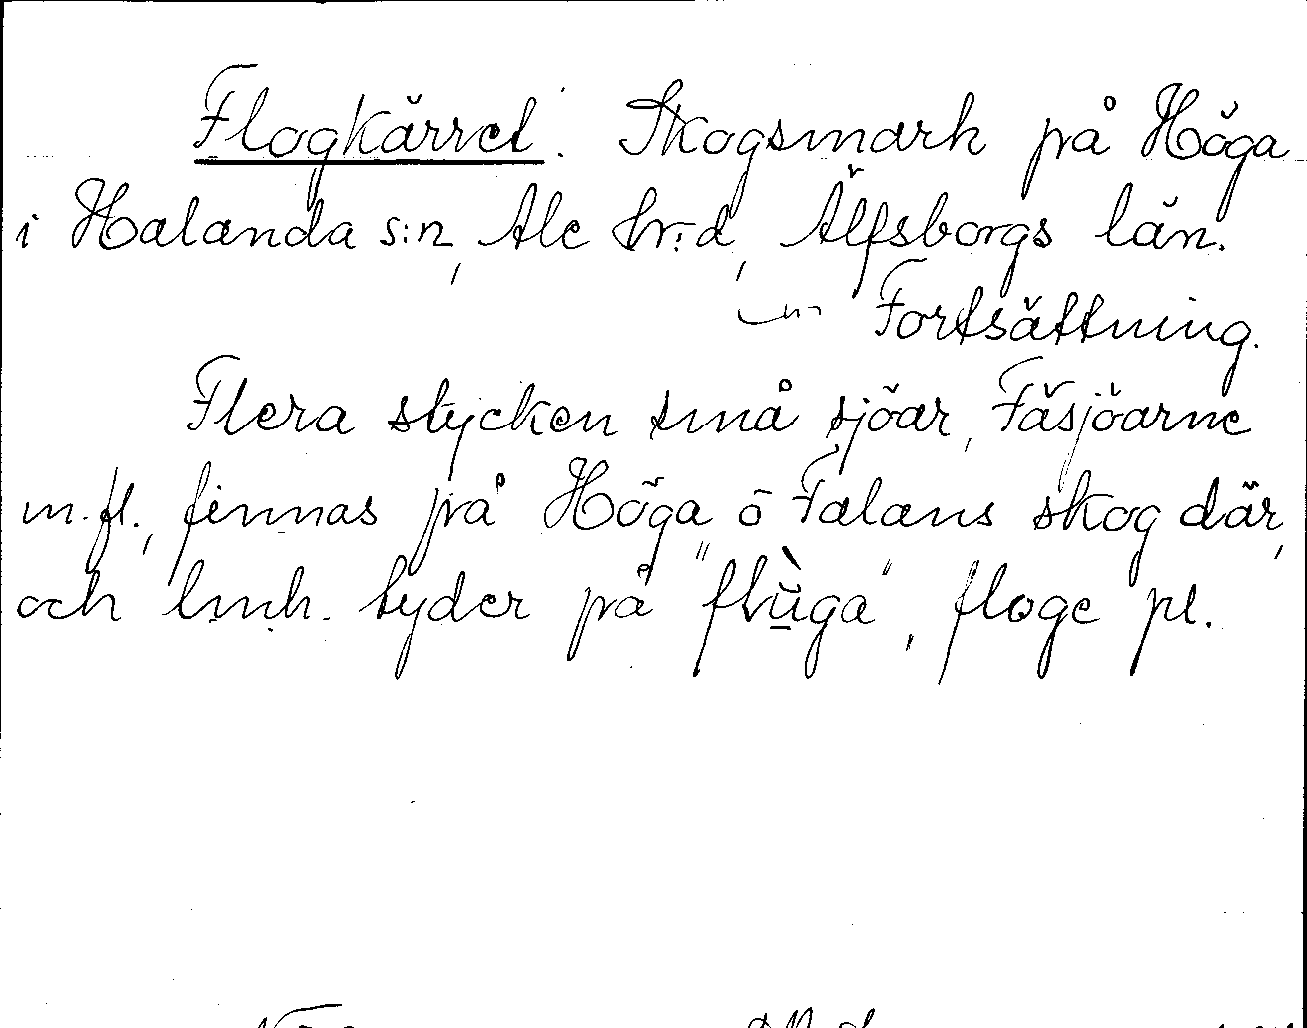 Flogkärret. Skogsmark på Höga
i Halanda s:n, Ale hr:d, Älfsborgs län.
Fortsättning.
Flera stycken små sjöar, Fäsjöarne
m.fl., finnas på Höga ö Falans skog där,
och tyder på "flùga", floge pl.